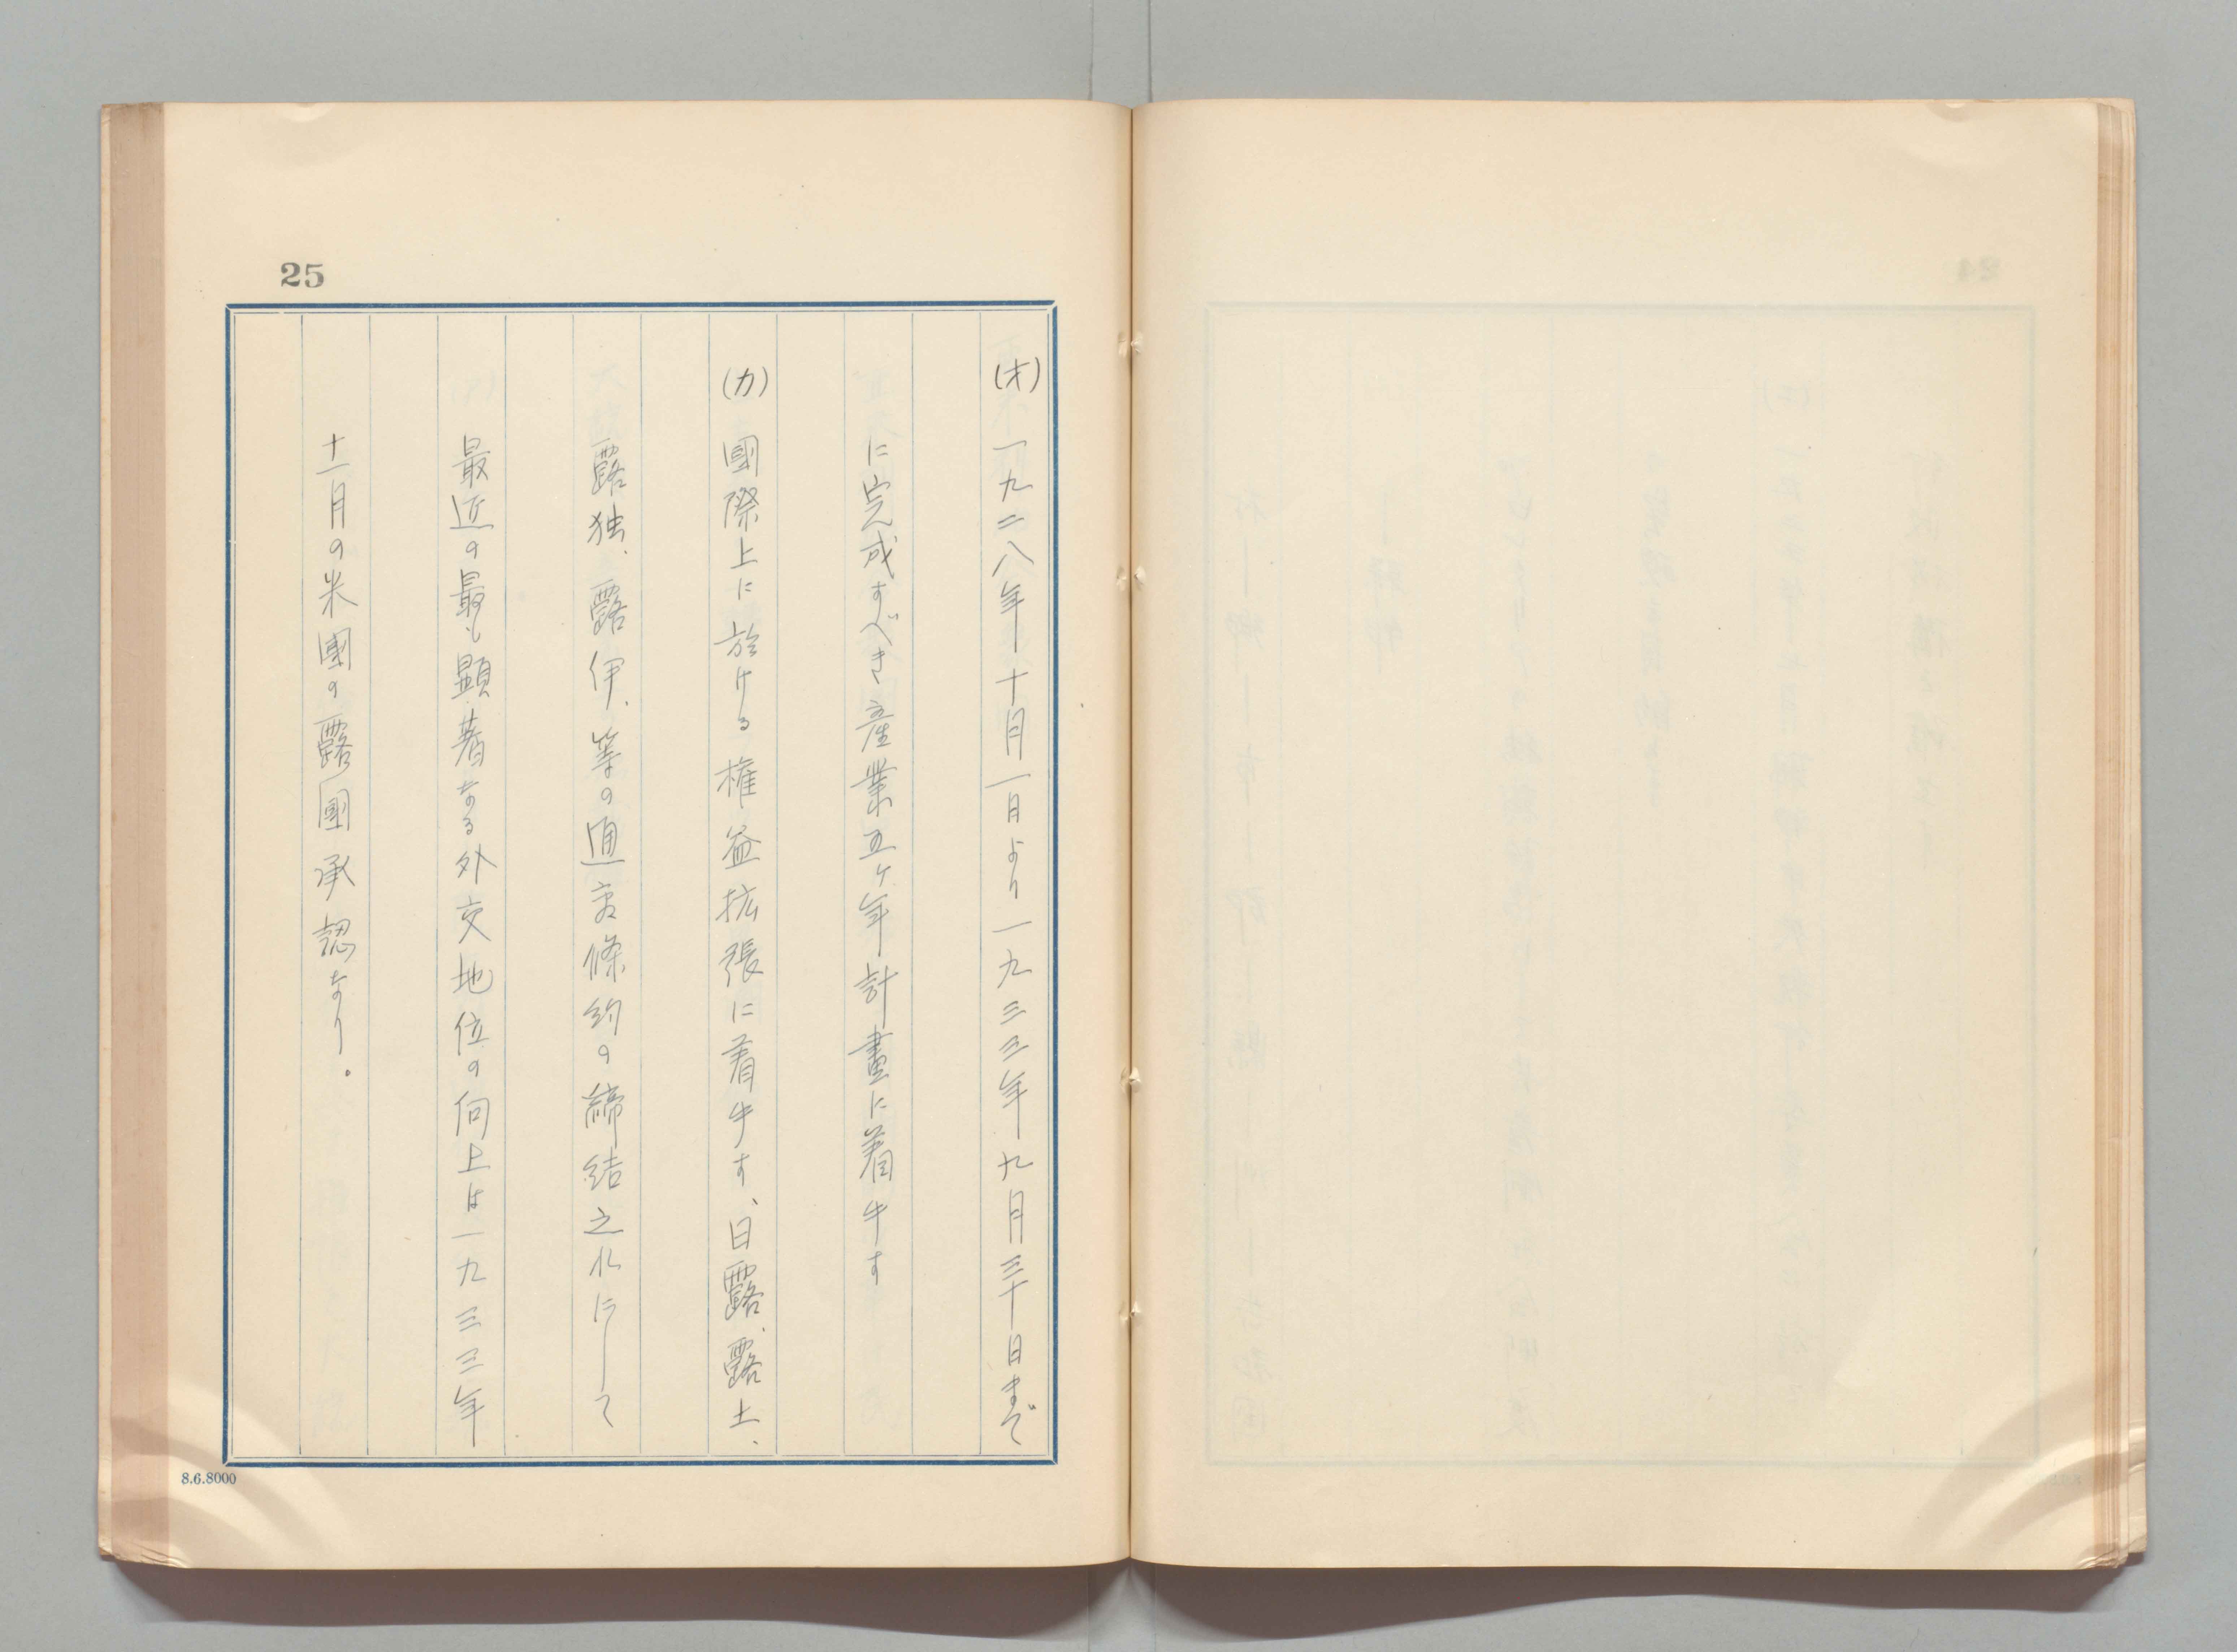 25
(オ) 一九二八年十月一日より一九三三年九月三十日まで
に完成すべき産業五ケ年計畫に着手す
(カ) 國際上に於ける権益拡張に着手す、日露、露土、
露独、露伊、等の通商條約の締結之れにして
最近の最も顕著なる外交地位の向上は一九三三年
十一月の米國の露國承認なり。
8.6.8000